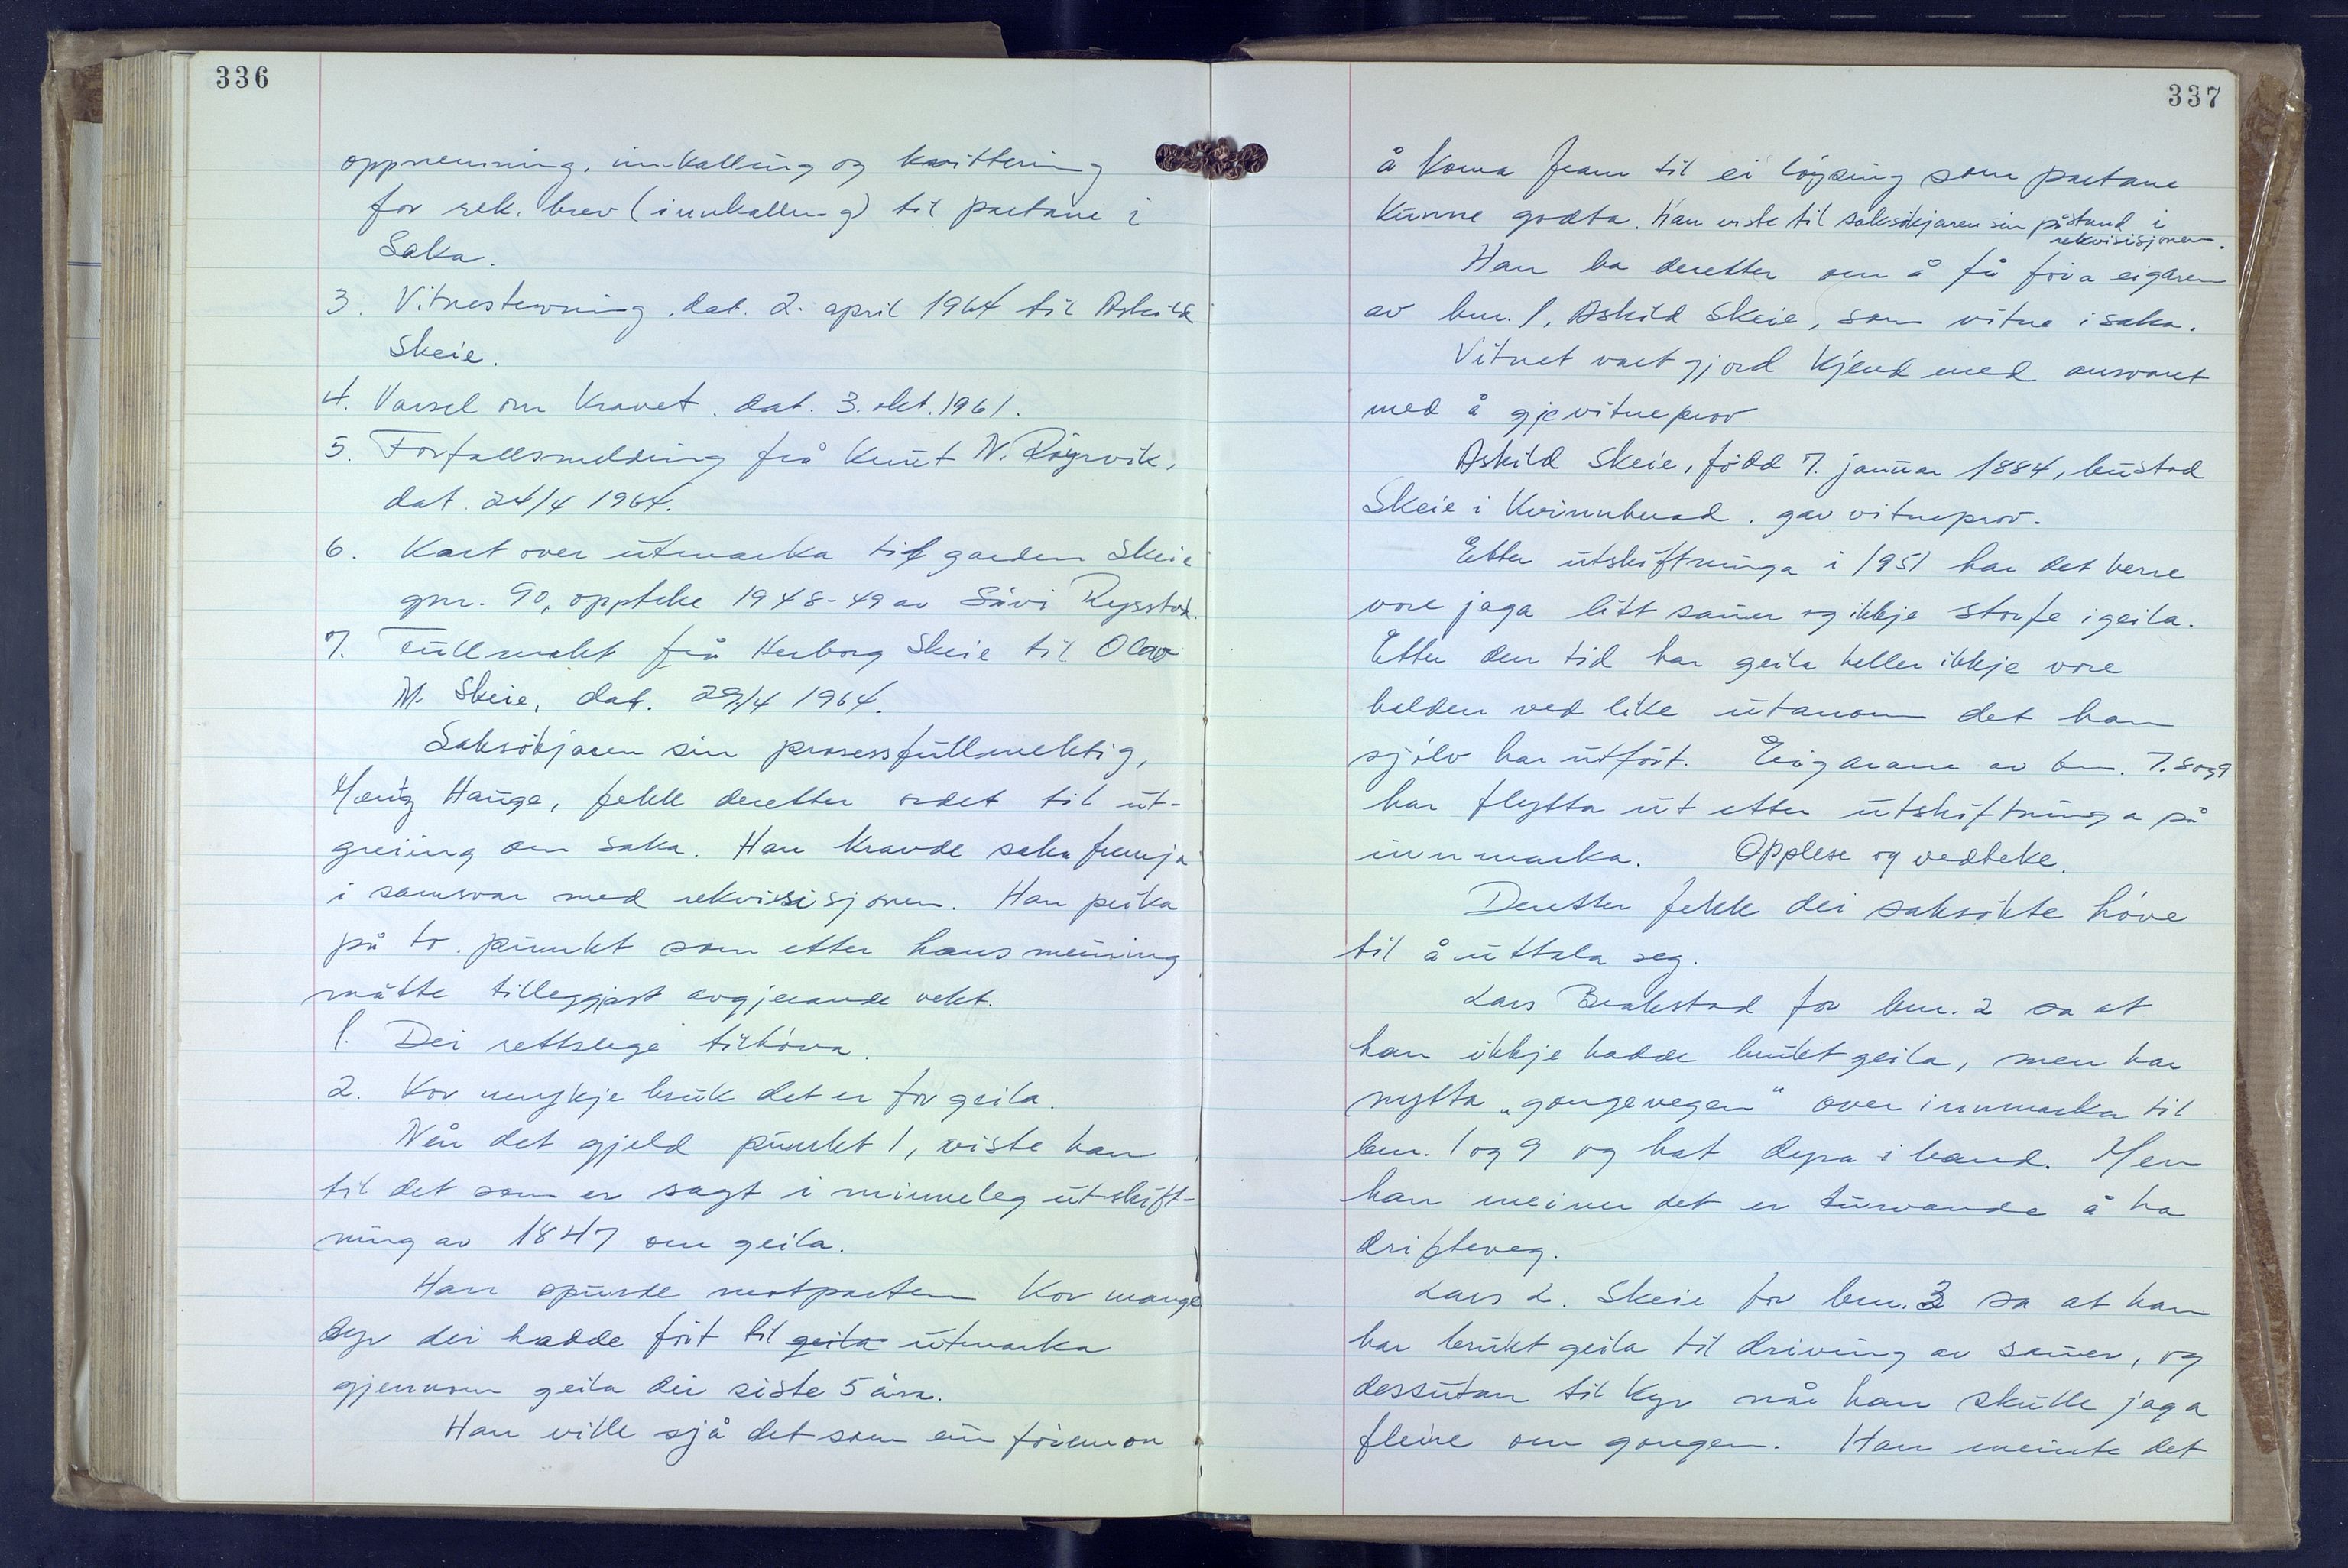 336
oppnemning, innkalling og kvittering
for rek. brev (innkalling) til partane i
Saka.
3. Vitnestevning, dat. 2. april 1964 til Askild
Skeie.
4. Varsel om kravet. dat. 3. okt. 1961.
5. Forfallsmelding frå Knut N. Røyrvik,
dat. 24/4 1964.
6. Kart over utmarka til garden Skeie
gnr. 90, oppteke 1948-49 av Rysstad.
7. Fullmakt frå Herborg Skeie til Olav
M. Skeie, dat. 29/4 1964.
Saksøkjaren sin prosessfullmektig,
Mentz Hauge, fekk deretter ordet til ut-
greiing om saka. Han kravde saka fremja
i samsvar med rekvisisjonen. Han peika
på to punkt som etter hans meining
måtte tilleggjast avgjerande vekt.
1. Dei rettslege tilhøva.
2. Kor mykje bruk det er for geila.
Når det gjeld punkt 1, viste han
til det som er sagt i minneleg utskift-
ning av 1847 om geila.
Han spurde motparten kor mange
dyr dei hadde ført til geila utmarka
gjennom geila dei siste 5 åra.
Han ville sjå det som ein føremon
337
å koma fram til ei løysing som partane
kunne godta. Han viste til saksøkjaren sin påstand i
rekvisisjonen.
Han ba deretter om å få føra eigaren
av bnr. 1, Askild Skeie, som vitne i saka.
Vitnet vart gjord kjend med ansvaret
med å gje vitneprov
Askild Skeie, fødd 7. januar 1884, bustad
Skeie i Kvinnherad. gav vitneprov.
Etter utskiftninga i 1951 har det berre
vore jaga litt sauer og ikkje storfe i geila.
Etter den tid har geila heller ikkje vore
halden ved like utanom det han
sjølv har utført. Eigarane av bnr. 7.8 og 9
har flytta ut etter utskiftninga på
innmarka. Opplese og vedteke.
Deretter fekk dei saksøkte høve
til å uttala seg.
Lars Brakstad for bnr. 2 sa at
han ikkje hadde brukt geila, men har
nytta „gangevegen" over innmarka til
bnr. 1 og 9 og hat dyra i band. Men
han meiner det er turvande å ha
drifteveg.
Lars L. Skeie for bnr. 3 sa at han
har brukt geila til driving av sauer, og
dessutan til kyr når han skulle jaga
fleire om gongen. Han meinte det